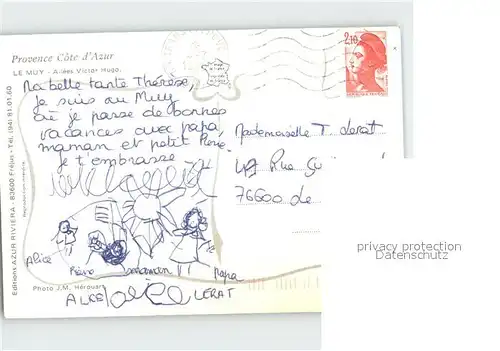 Provence Côte d'Azur
LE MUY - Allées Victor Hugo.
2,10
Ma belle tante Thérèse,
je suis au Muy
où je passe de bonnes
vacances avec papa,
maman et petit Pierre.
je t'embrasse
Mademoiselle T. Lerat
Rue
76600 Le
Alice
Pierre maman papa
ALICE LERAT
Photo J.M. Hérouart
Editions AZUR RIVIERA - 83600 Fréjus - Tél. (94) 81.01.60
privacy protection
Datenschutz